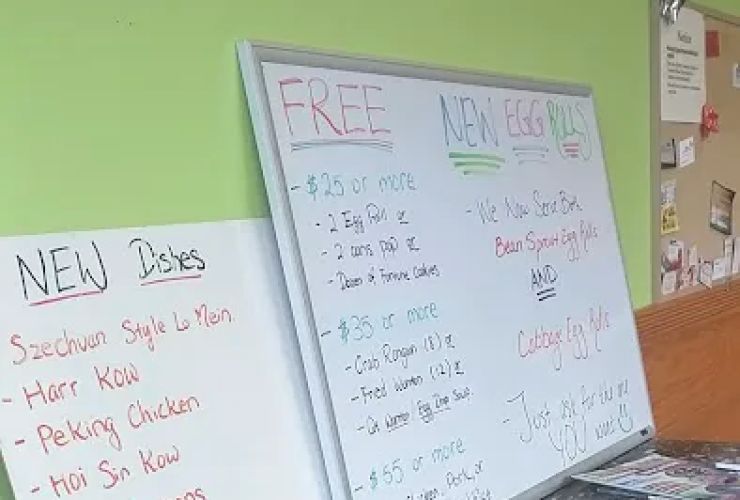 NEW Dishes
Szechuan Style Lo Mein
- Harr Kow
- Peking Chicken
- Hoi Sin Kow
FREE
- $25 or more
- 2 Egg Roll or
- 2 cans pop or
- Dozen of Fortune Cookies
- $35 or more
- Crab Rangoon (8) or
- Fried Wonton (12) or
- Qt Wonton/Egg Drop Soup
- $55 or more
Chicken, Pork, or
NEW EGG ROLLS
- We Now Serve Both
Bean Sprout Egg Rolls
AND
Cabbage Egg Rolls
- Just ask for the one
YOU want
Notice